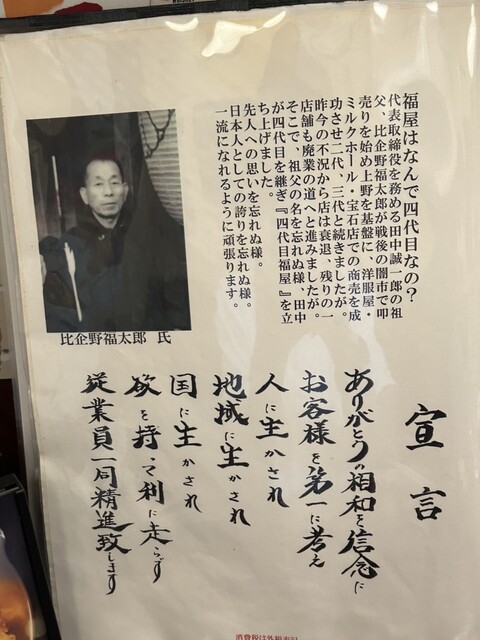 福屋はなんで四代目なの？
代表取締役を務める田中誠一郎の祖
父、比企野福太郎が戦後の闇市で叩
売りを始め上野を基盤に、洋服屋・
ミルクホール・宝石店での商売を成
功させ二代、三代と続きましたが。
昨今の不況から店は衰退、残りの一
店舗も廃業の道へと進みましたが。
そこで、祖父の名を忘れぬ様、田中
が四代目を継ぎ『四代目福屋』を立
ち上げました。
先人への思いを忘れぬ様。
日本人としての誇りを忘れぬ様。
一流になれるように頑張ります。
比企野福太郎 氏
宣言
ありがとうの相和を信念に
お客様を第一に考え
人に生かされ
地域に生かされ
国に生かされ
欲を持って利に走らず
従業員一同精進致します